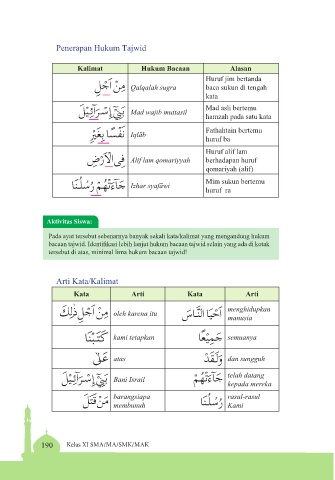 Penerapan Hukum Tajwid
Kalimat Hukum Bacaan Alasan
مِنْ اَجْلِ Qalqalah sugra Huruf jim bertanda
baca sukun di tengah
kata
بَنِيْٓ اِسْرَاۤءِيْلَ Mad wajib muttasil Mad asli bertemu
hamzah pada satu kata
نَفْسًا بِغَيْرِ Iqlāb Fathahtain bertemu
huruf ba
فِى الْاَرْضِ Alif lam qomariyyah Huruf alif lam
berhadapan huruf
qomariyah (alif)
جَاۤءَتْهُمْ رُسُلُنَا Izhar syafawi Mim sukun bertemu
huruf ra
Aktivitas Siswa:
Pada ayat tersebut sebenarnya banyak sekali kata/kalimat yang mengandung hukum
bacaan tajwid. Identifikasi lebih lanjut hukum bacaan tajwid selain yang ada di kotak
tersebut di atas, minimal lima hukum bacaan tajwid!
Arti Kata/Kalimat
Kata Arti Kata Arti
مِنْ اَجْلِ ذٰلِكَ oleh karena itu اَحْيَا النَّاسَ menghidupkan
manusia
كَتَبْنَا kami tetapkan جَمِيْعًا semuanya
عَلٰى atas وَلَقَدْ dan sungguh
بَنِيْٓ اِسْرَاۤءِيْلَ Bani Israil جَاۤءَتْهُمْ telah datang
kepada mereka
مَنْ قَتَلَ barangsiapa
membunuh رُسُلُنَا rasul-rasul
Kami
190 Kelas XI SMA/MA/SMK/MAK